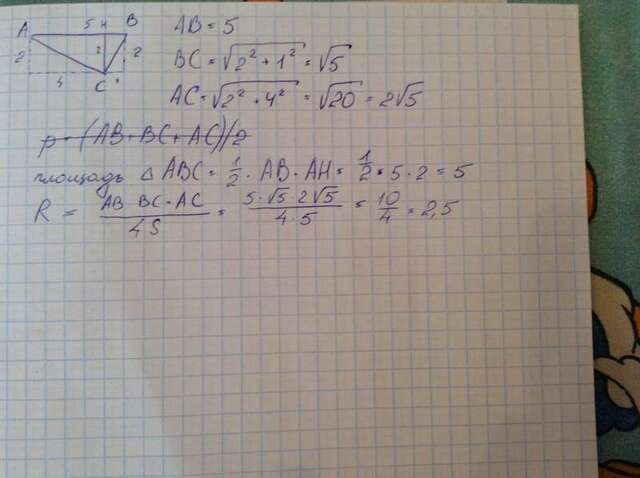 A 5 H B
2 2 2
4 C 1
AB = 5
BC = √(2² + 1²) = √5
AC = √(2² + 4²) = √20 = 2√5
p = (AB + BC + AC)/2
площадь △ ABC = 1/2 · AB · AH = 1/2 · 5 · 2 = 5
R = (AB BC · AC)/(4S) = (5 · √5 2√5)/(4 · 5) = 10/4 = 2,5